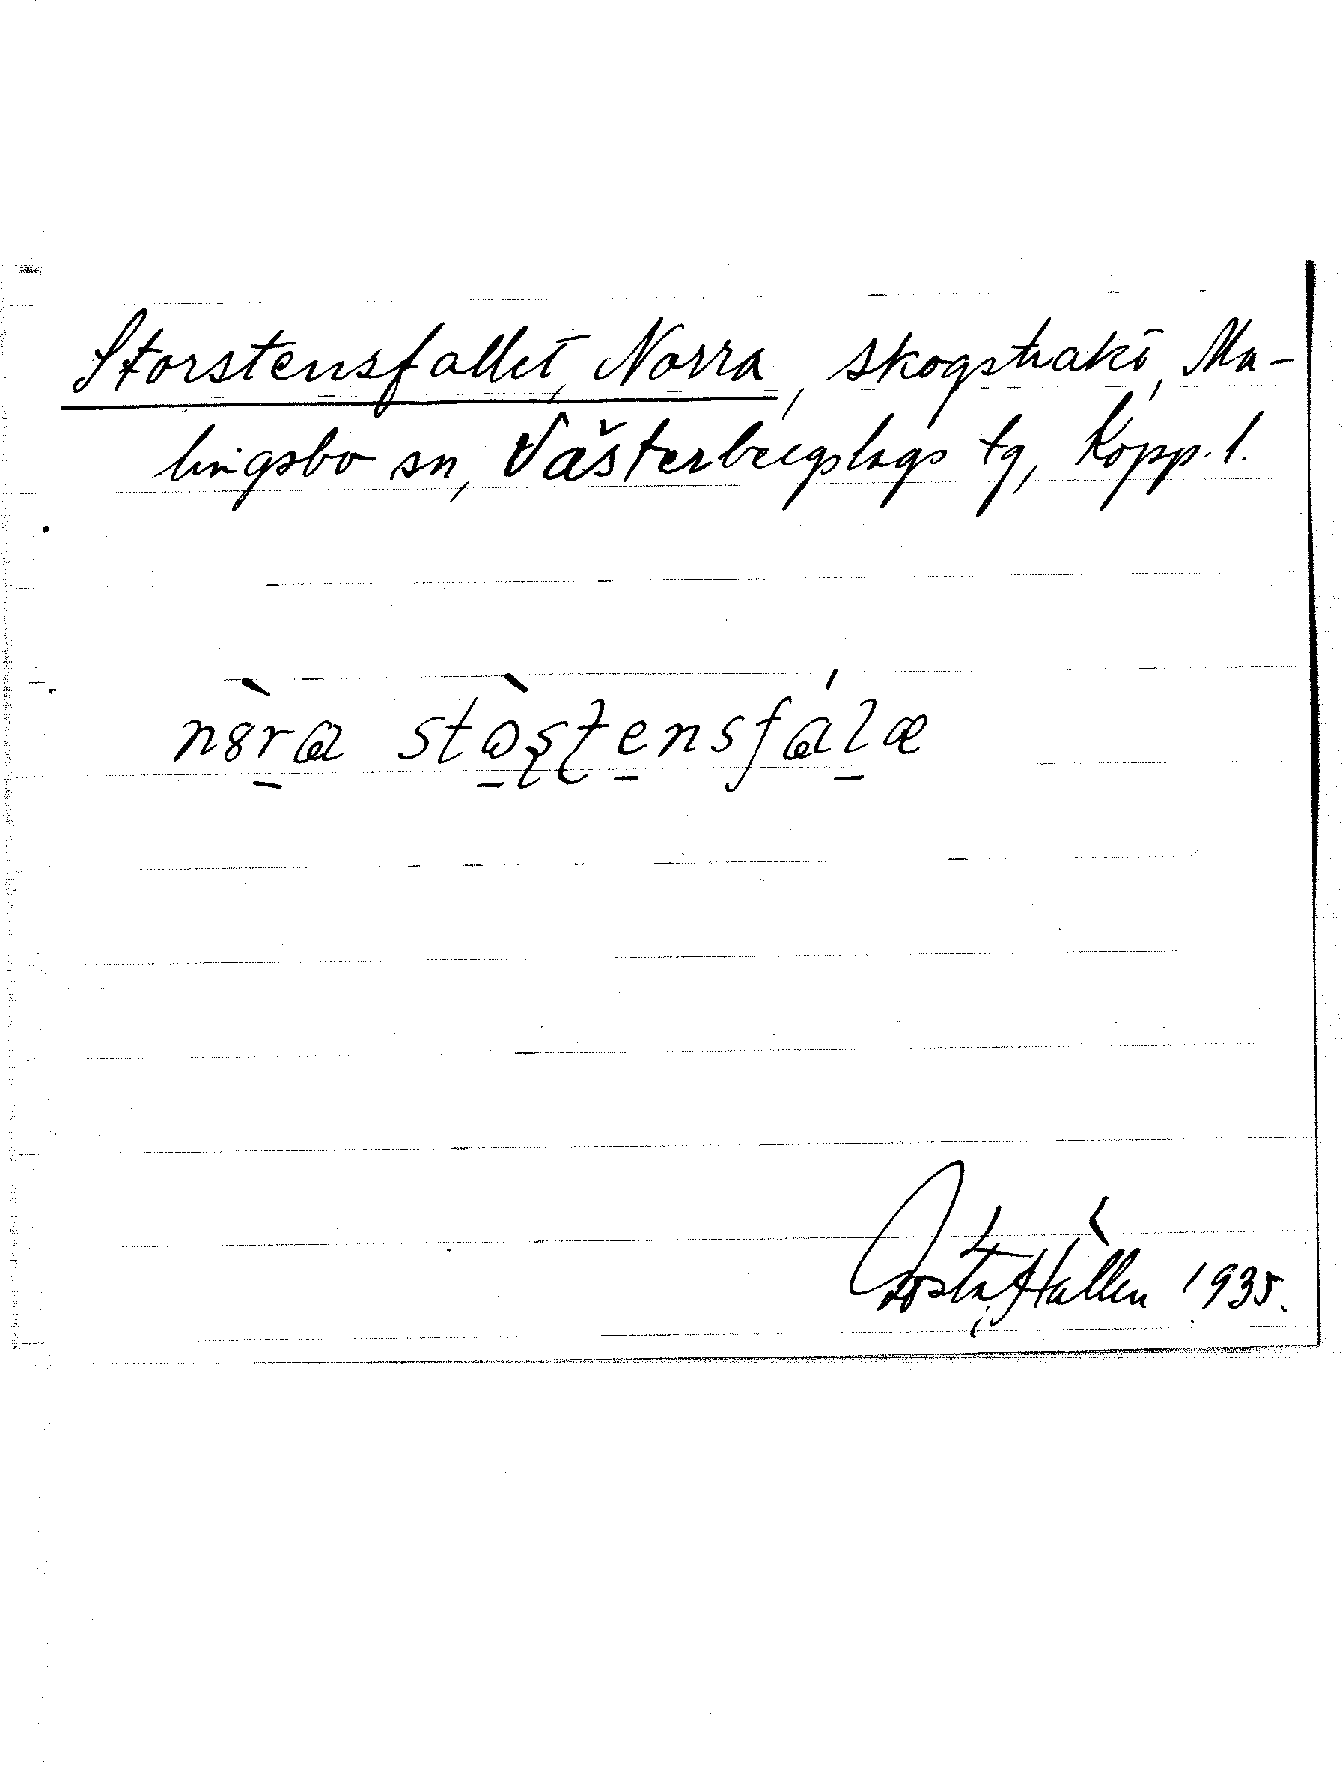 Storstensfallet, Norra, skogstrakt, Ma-
lingsbo sn, Västerbergslags tg, Kopp. l.
nȣ̀r̲a stò̲ʂʈe̲nsfál̲æ
Gösta Hallén 1935.